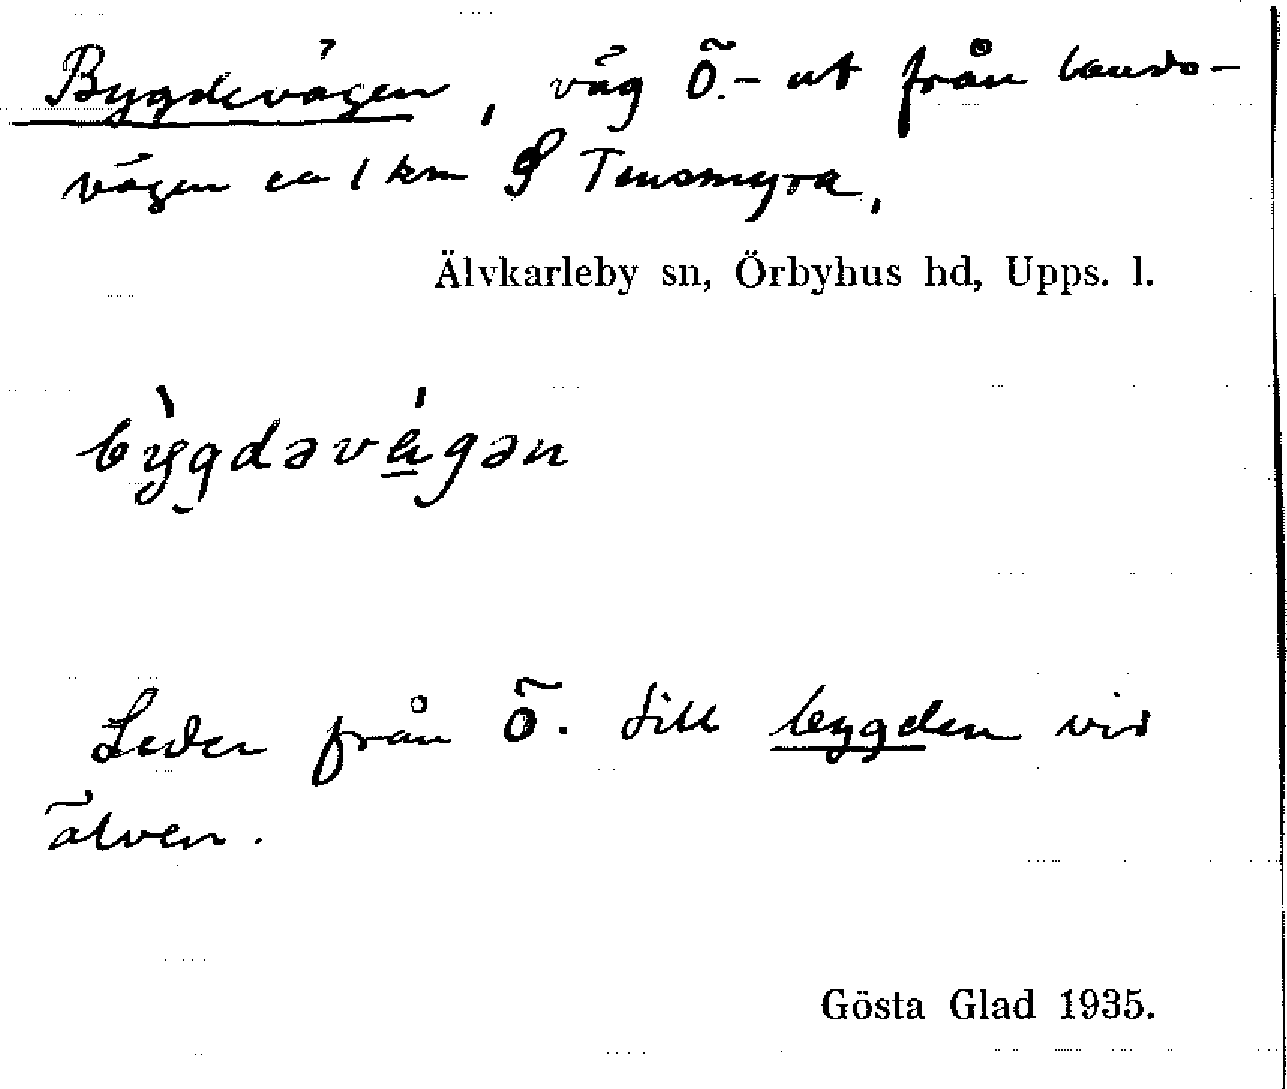 Bygdevägen, väg Ö.-ut från lands-
vägen ca 1 km S Tensmyra.
Älvkarleby sn, Örbyhus hd, Upps. l.
bỳgdəvä́gən
Leder från Ö. till bygden vid
älven.
Gösta Glad 1935.